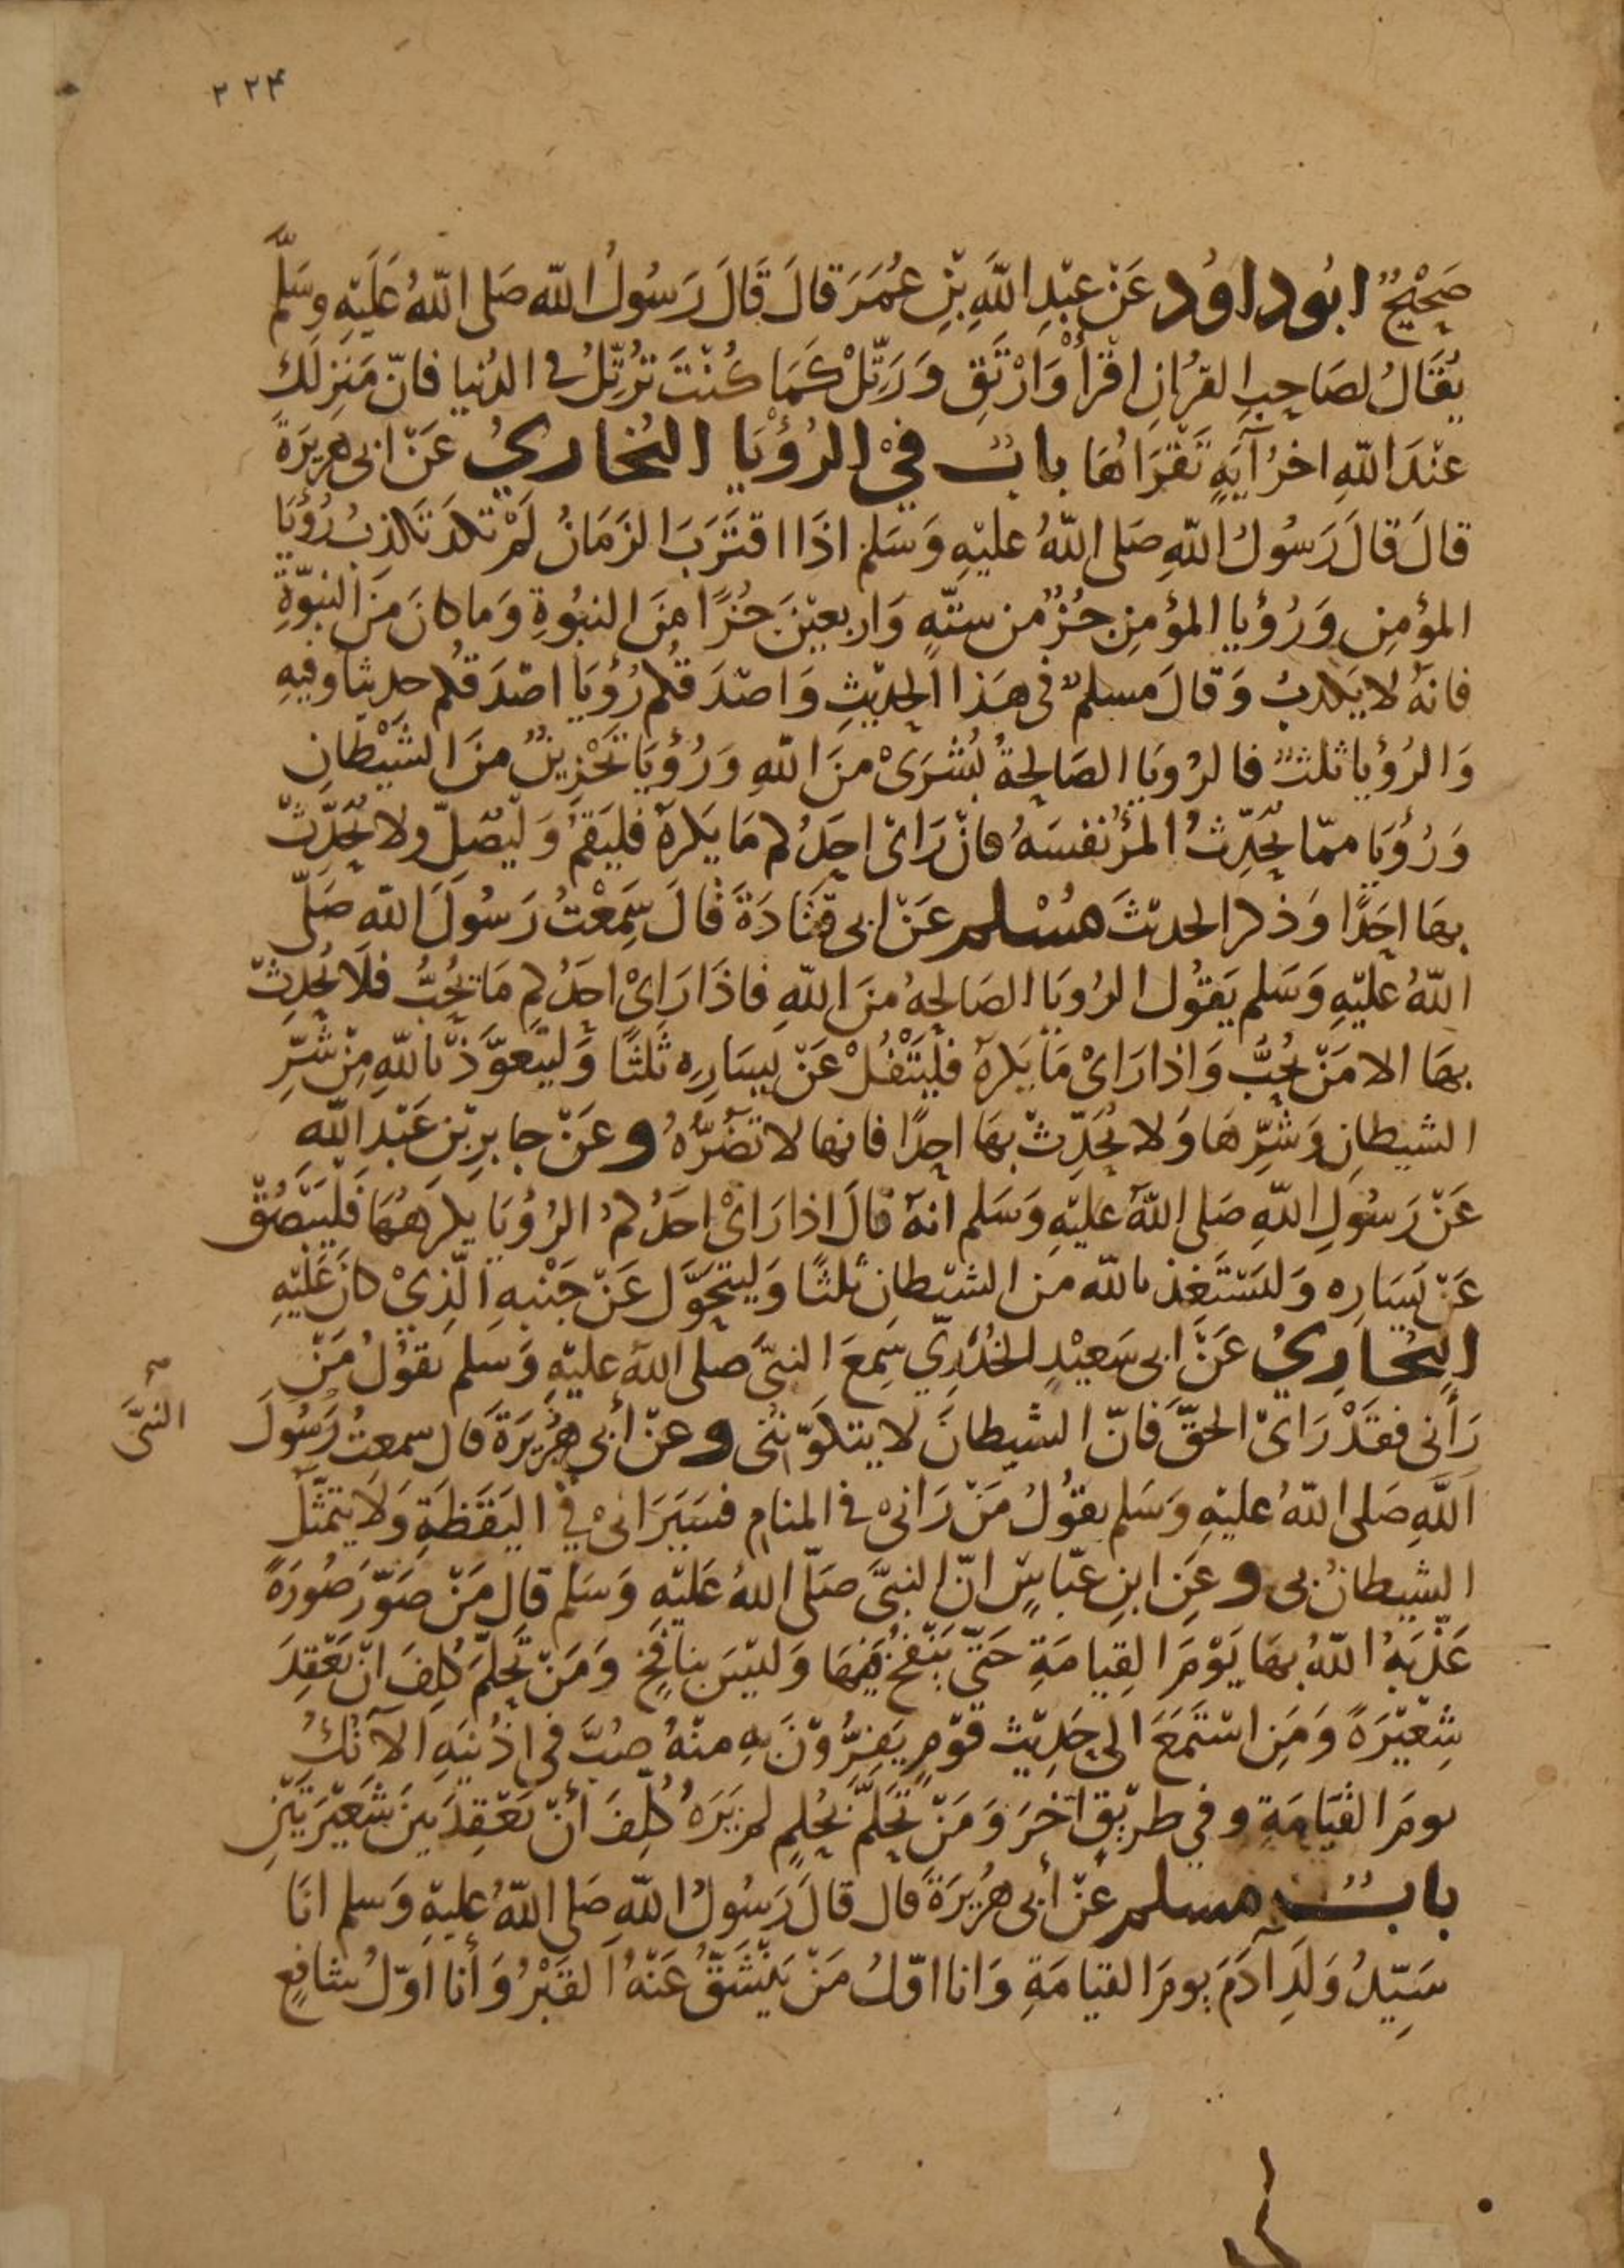 ٢٢٤
صَحِيْحٌ ابُو داوُد عَنْ عَبْدِ اللَّهِ بْنِ عُمَرَ قالَ قَالَ رَسُولُ اللّه صَلى اللّهُ عَلَيْهِ وسَلَّم
يُقَالُ لصَاحِبِ القرُانِ اقْرأْ وَارْتَقِ وَرَتِّلْ كَمَا كُنْتَ تُرَتِّلُ فى الدُنيا فانّ مَنزِلَكَ
عنْدَ اللّهِ اخرُ آيَةٍ تَقْرَاُهَا بابٌ فيْ الرُؤْيَا البُخاريُ عَنْ ابى هريرَةَ
قالَ قالَ رَسُولُ اللّهِ صَلى اللّهُ عليْهِ وَسَلم اذَا اقتَرَبَ الزَمَانُ لَمْ تكَدْ تَكذِبُ رُؤْيَا
المؤمنِ وَرُؤيا المؤمِنِ جُزْءٌ من ستّهٍ وَاربعيْنَ جُزًا منَ النبُوةِ وَما كانَ مِنَ النبوّةِ
فانهُ لا يَكذبُ وَقالَ مسلمٌ فى هَذا الحديْثِ وَاصْدَقُكم رُؤيَا اصْدَقكم حديثا وفيهِ
وَالرُؤيا ثلثٌ فالرُويَا الصَالحةُ بُشْرَىْ منَ اللّهِ وَرُؤيَا تَحْزِينٌ منَ الشَيْطانِ
وَرُؤيَا ممّا يُحَدِّثُ المرْءُ نفسَهُ فانْ رَاىْ احَدُكم مَا يَكرهُ فليَقمْ وَليُصَلِّ ولا يُحَدِّثْ
بهَا احَدًا وَذكر الحديْثَ مُسْلم عَنْ ابى قَتَادَةَ قَالَ سَمِعْتُ رَسُولَ اللّه صَلّى
اللّهُ عليْهِ وَسَلم يَقُولُ الرُويَا الصَالحهُ منَ اللّهِ فاذَا رَاىْ احَدُكم مَا يُحِبُّ فلَا يُحَدِثْ
بهَا الا مَنْ يُحِبُّ وَاذا رَاىْ مَا يَكرهُ فلْيَتْفُلْ عَنْ يسَارِه ثَلثًا وَليتَعوَّذْ باللّهِ مِنْ شَرِّ
الشيطانِ وَشَرِّهَا وَلا يُحَدِّثْ بهَا احِدًا فانها لا تَضُرُّهُ وعَنْ جابرِ بْنِ عَبْدِ اللّه
عَنْ رَسُولِ اللّهِ صَلى اللّهُ عليْهِ وَسَلم انهُ قالَ اذا رَاىْ احَدُكمُ الرُؤيَا يكرَهُهَا فَلْيَبْصُقْ
عَنْ يَسَارِه وَليَسْتَعِذ باللّه من الشيْطانِ ثلثًا وَليتحَوَّل عَنْ جَنْبهِ الّذِيْ كانَ عَلَيْهِ
البُخَارِيُ عَنْ ابى سَعيْدٍ الخُدْرِيّ سَمِعَ النبىَّ صلى اللهُ عليْهِ وَسَلم يقوْلُ مَنْ
رَأنى فقَدْ رَاىْ الحقَّ فَانّ الشيطانَ لا يتكوَّننُى وعنْ أبى هُرَيْرَةَ قال سمعتُ رَسُولَ
النبىَّ
اللّهِ صَلى اللّهُ عليْهِ وَسَلم يقوُلُ مَنْ رَانىْ فى المنام فسَيَرَانىْ فيْ اليَقَظَةِ وَلَا يتمَثّلُ
الشيطانُ بى وعَنِ ابنِ عبّاسٍ انّ النبىَّ صَلّى اللهُ عَليْهِ وَسَلم قال مَنْ صَوّرَ صُورَةً
عَذّبَهُ اللّهُ بهَا يَوْمَ القِيامَةِ حَتّى يَنْفُخَ فيْهَا وَليْسَ بنافخٍ وَمَنْ تَحَلَّمَ كُلِفَ انْ يَعْقِدَ
شِعيْرَةً وَمَنِ اسْتَمَعَ الى حَدِيْثِ قَوْمٍ يَفِرُّوْنَ بهِ منْهُ صُبَّ فى اذُنيَهِ الآنُكُ
يومَ القيَامَةِ وفي طريْقٍ آخَرَ وَمَنْ تَحَلَّمَ بحُلمٍ لم يَرَهُ كُلِّفَ أنْ يَعْقِدَ بينَ شَعيْرَتَيْنِ
بابٌ مسلم عَنْ أبى هُرَيْرَةَ قال قالَ رَسُولُ اللّهِ صَلى اللّهُ عليهِ وَسلم انَا
سَيّدُ وَلَدِ ادَمَ يومَ القيامَةِ وَانا اوّلُ مَنْ يَنْشَقُّ عَنْهُ القَبْرُ وَأنا اوّلُ شافعٍ